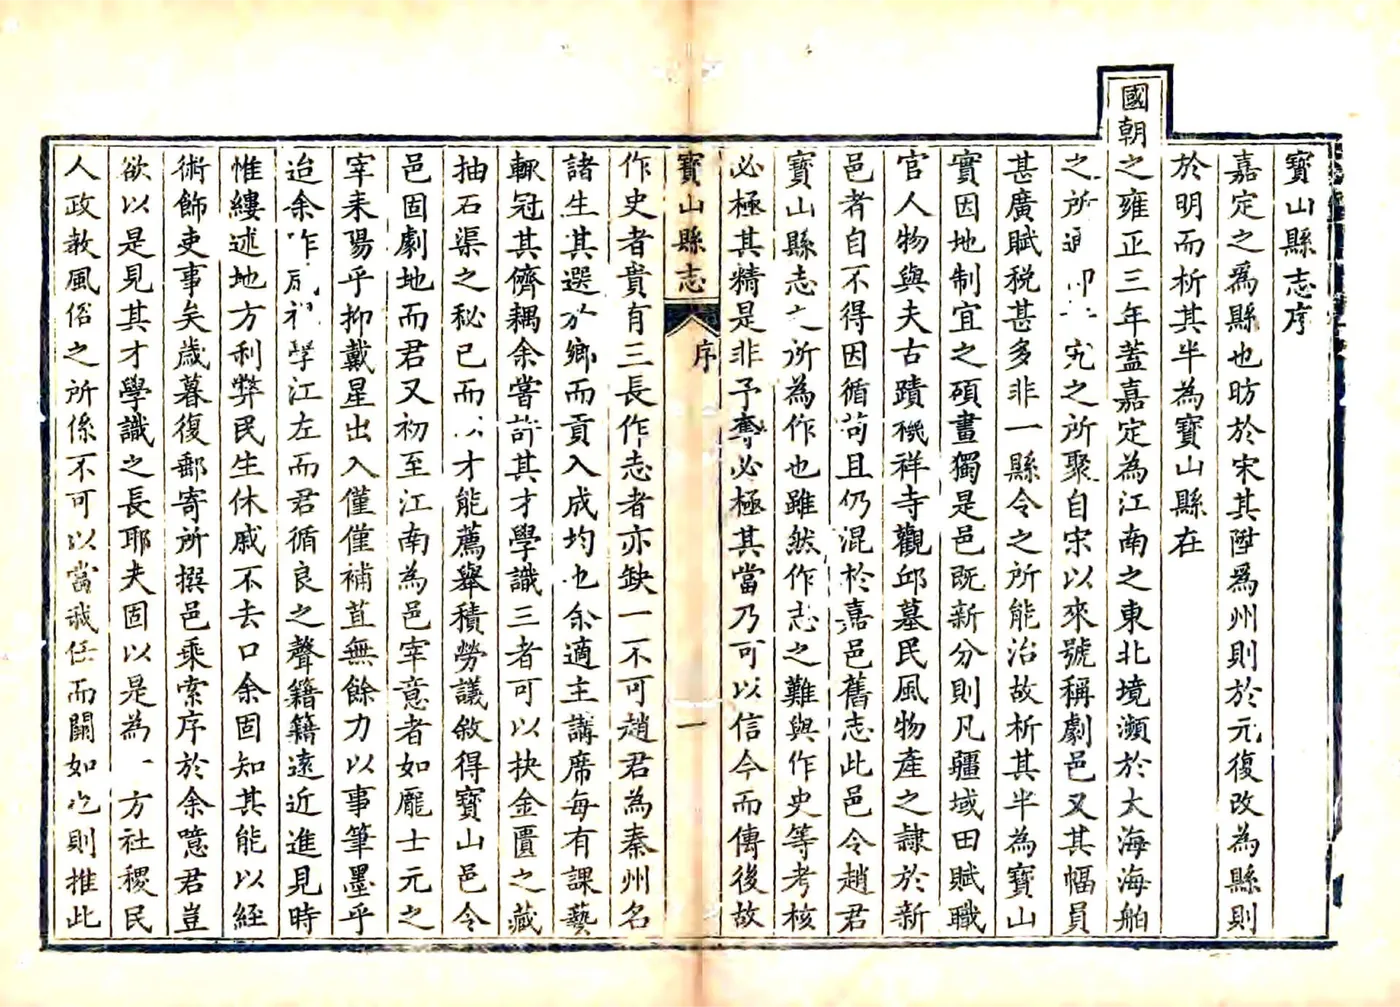 寶山縣志序
嘉定之爲縣也昉於宋其陞爲州則於元復改為縣則
於明而析其半為寶山縣在
國朝之雍正三年蓋嘉定為江南之東北境瀕於大海海舶
之所通之所聚自宋以來號稱劇邑又其幅員
甚廣賦税甚多非一縣令之所能治故析其半為寶山
實因地制宜之碩畫獨是邑既新分則凡疆域田賦職
官人物與夫古蹟禨祥寺觀邱墓民風物產之隷於新
邑者自不得因循苟且仍混於嘉邑舊志此邑令趙君
寶山縣志之所為作也雖然作志之難與作史等考核
必極其精是非予奪必極其當乃可以信今而傳後故
寶山縣志
序
一
作史者貴有三長作志者亦缺一不可趙君為秦州名
諸生其選於鄉而貢入成均也余適主講席每有課藝
輒冠其儕耦余嘗許其才學識三者可以抉金匱之藏
抽石渠之秘已而以才能薦舉積勞議敘得寶山邑令
邑固劇地而君又初至江南為邑宰意者如龐士元之
宰耒陽乎抑戴星出入僅僅補苴無餘力以事筆墨乎
迨余昨學江左而君循良之聲籍籍遠近進見時
惟縷述地方利弊民生休戚不去口余固知其能以經
術飾吏事矣歲暮復郵寄所撰邑乘索序於余噫君豈
欲以是見其才學識之長耶夫固以是為一方社稷民
人政教風俗之所係不可以當我任而闕如也則推此